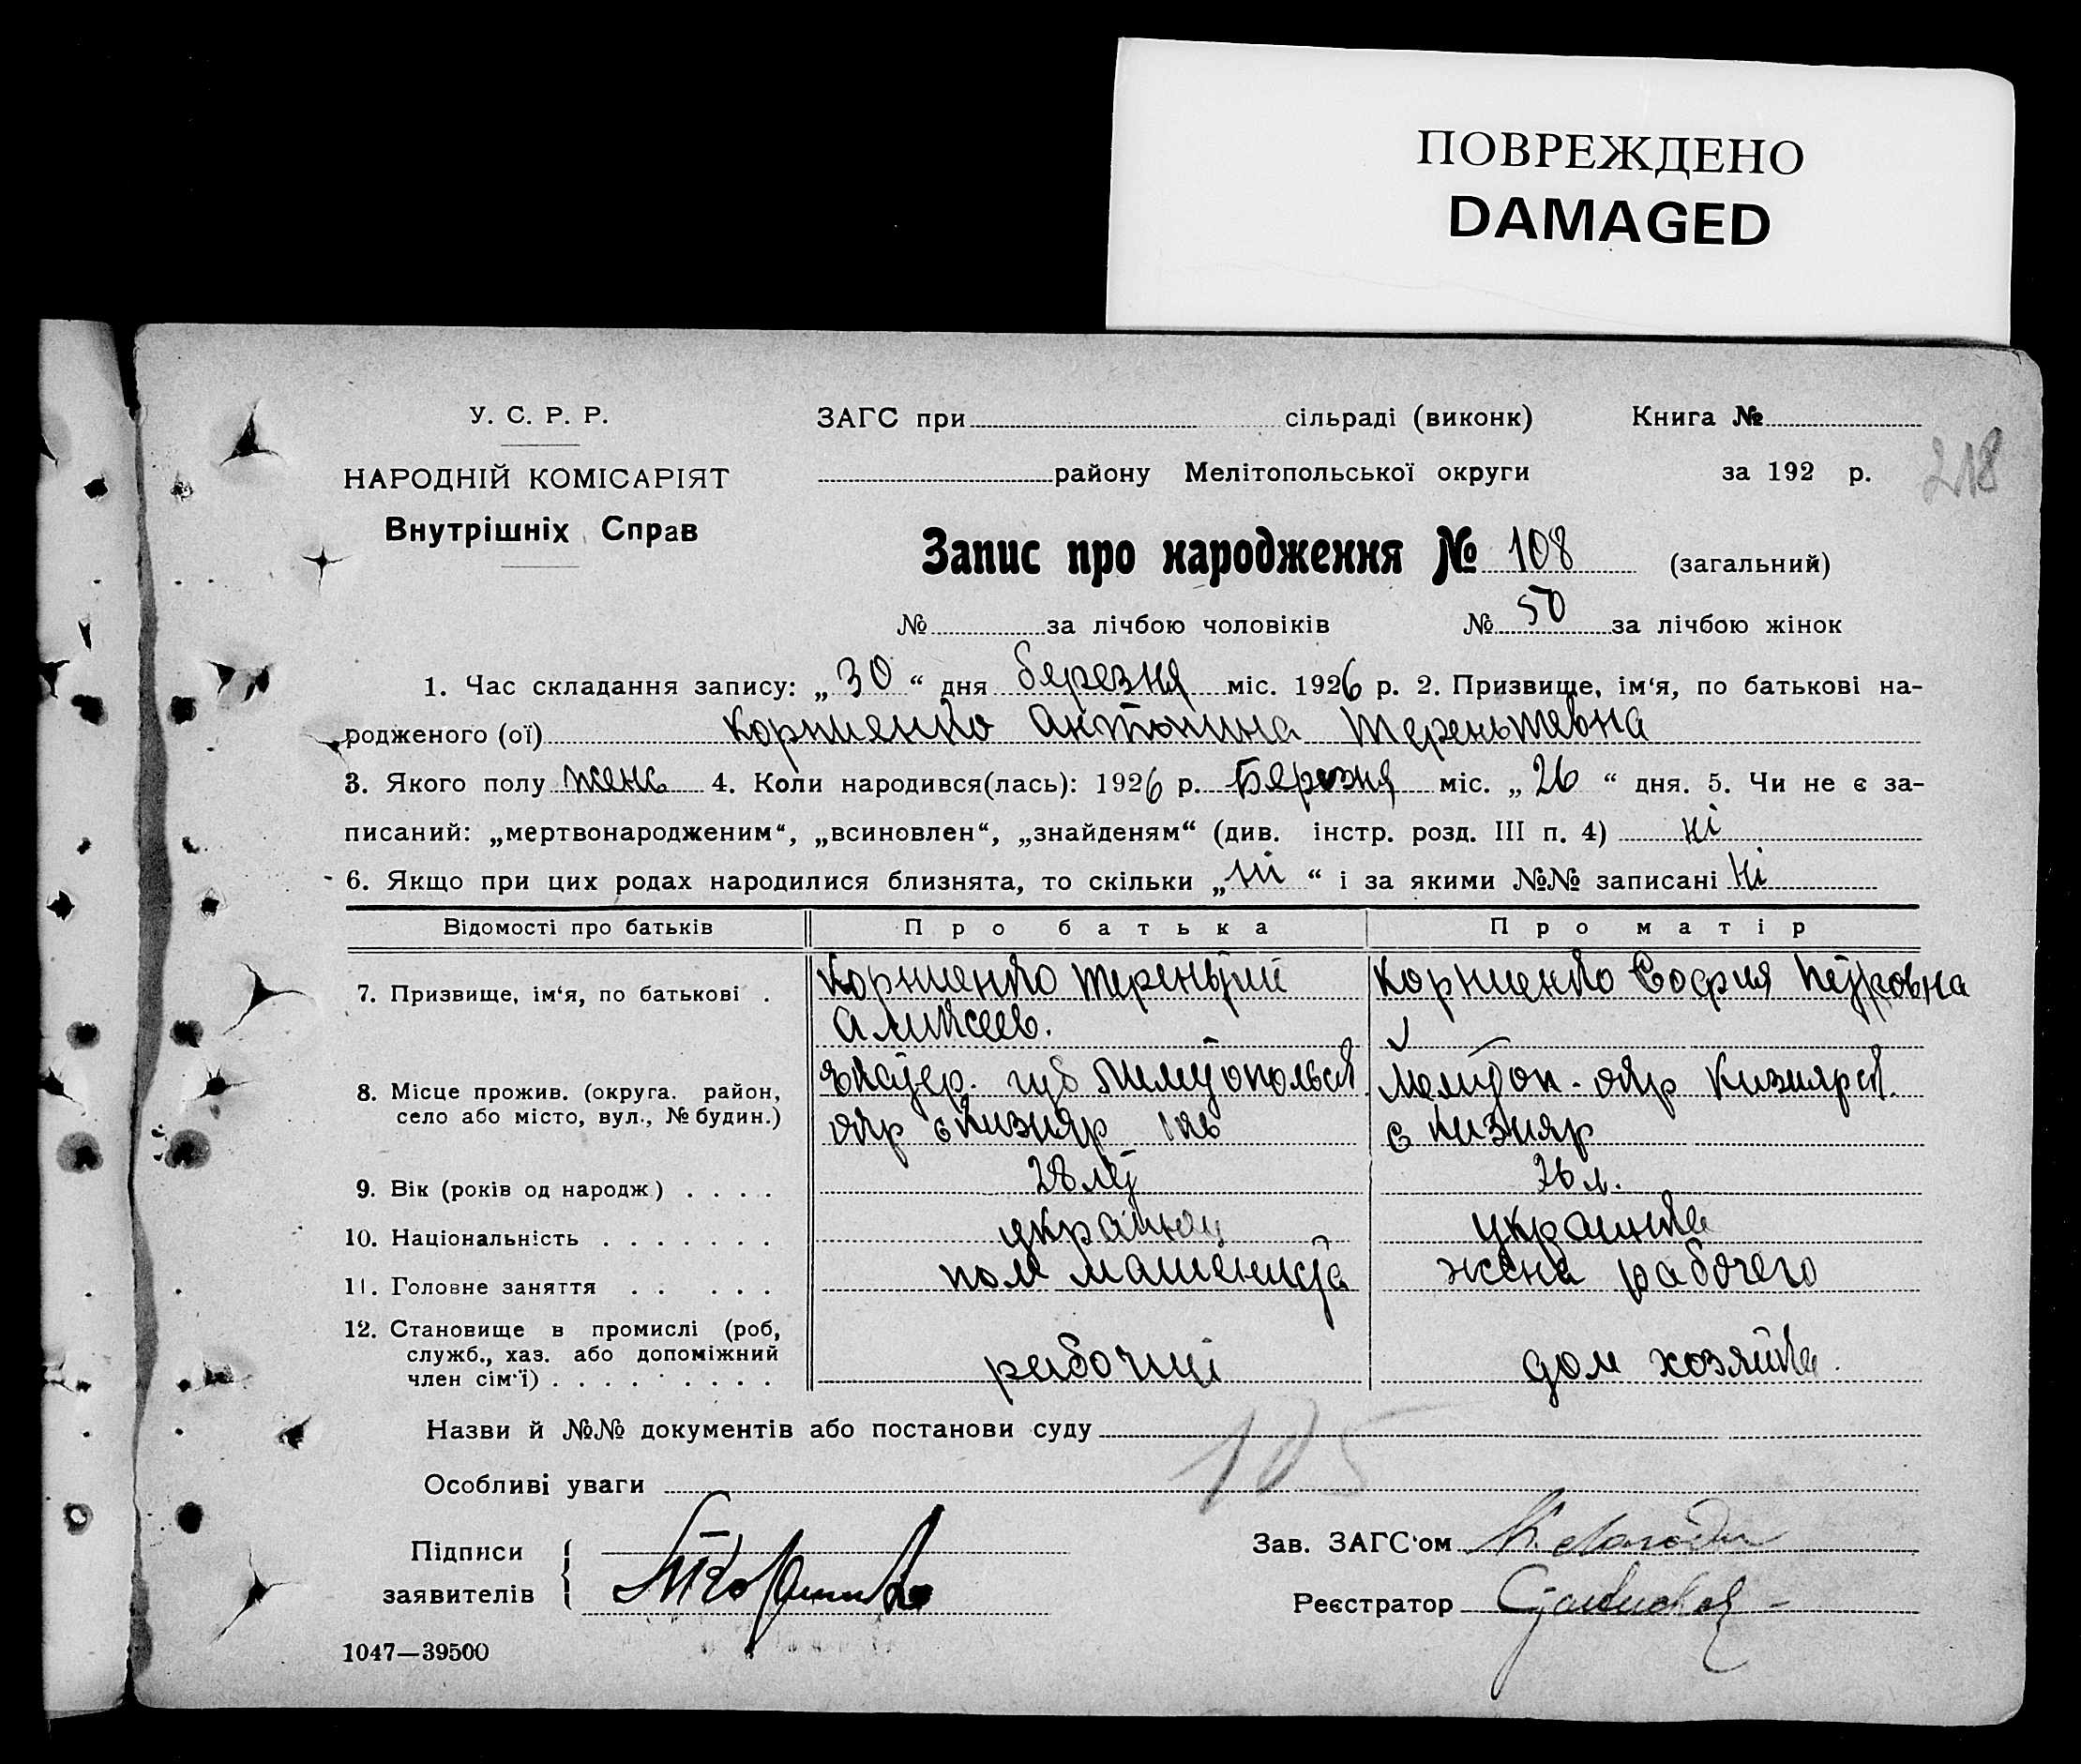 ПОВРЕЖДЕНО
DAMAGED
У. С. Р. Р.
ЗАГС при сільраді (виконк) Книга №
НАРОДНІЙ КОМІСАРІЯТ
району Мелітопольської округи за 192 р.
218
Внутрішніх Справ
Запис про народження № 108 (загальний)
№ за лічбою чоловіків № 50 за лічбою жінок
1. Час складання запису: „30“ дня березня міс. 1926 р. 2. Призвище, ім‘я, по батькові на-
родженого (ої) Корниенко Антонина Терентьевна
3. Якого полу женс 4. Коли народився(лась): 1926 р. Березня міс. „26“ дня. 5. Чи не є за-
писаний: „мертвонародженим“, „всиновлен“, „знайденям“ (див. інстр. розд. III п. 4) ні
6. Якщо при цих родах народилися близнята, то скільки „ні“ і за якими №№ записані ні
Відомості про батьків Про батька Про матір
7. Призвище, ім‘я, по батькові . Корниенко Терентий Корниенко София Петровна
Алексеев.
8. Місце прожив. (округа. район, Екатер. губ Мелитопольск Мелитоп. окр Кизиярск.
село або місто, вул., № будин.) окр с Кизияр с Кизияр
9. Вік (років од народж) . . . . 28 лет 26 л.
10. Національність . . . . . . . украинец украинка
11. Головне заняття . . . . . пом машиниста жена рабочего
12. Становище в промислі (роб,
служб., хаз. або допоміжний рабочий дом хозяйка.
член сім‘ї) . . . . . . . . .
Назви й №№ документів або постанови суду
105
Особливі уваги
Підписи
заявителів
Зав. ЗАГС‘ом
Реєстратор
1047—39500